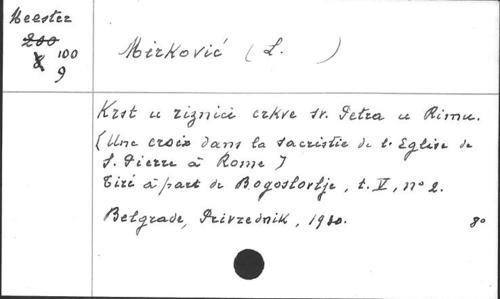 Meester
200
8 100
9
Mirković (L. )
Krst u riznici crkve sv. Petra u Rimu.
(Une croix dans la sacristie de l'Eglise de
S. Pierre à Rome)
Tiré à part de Bogoslovlje, t. V, nº 2.
Belgrade, Privrednik, 1930. 8º